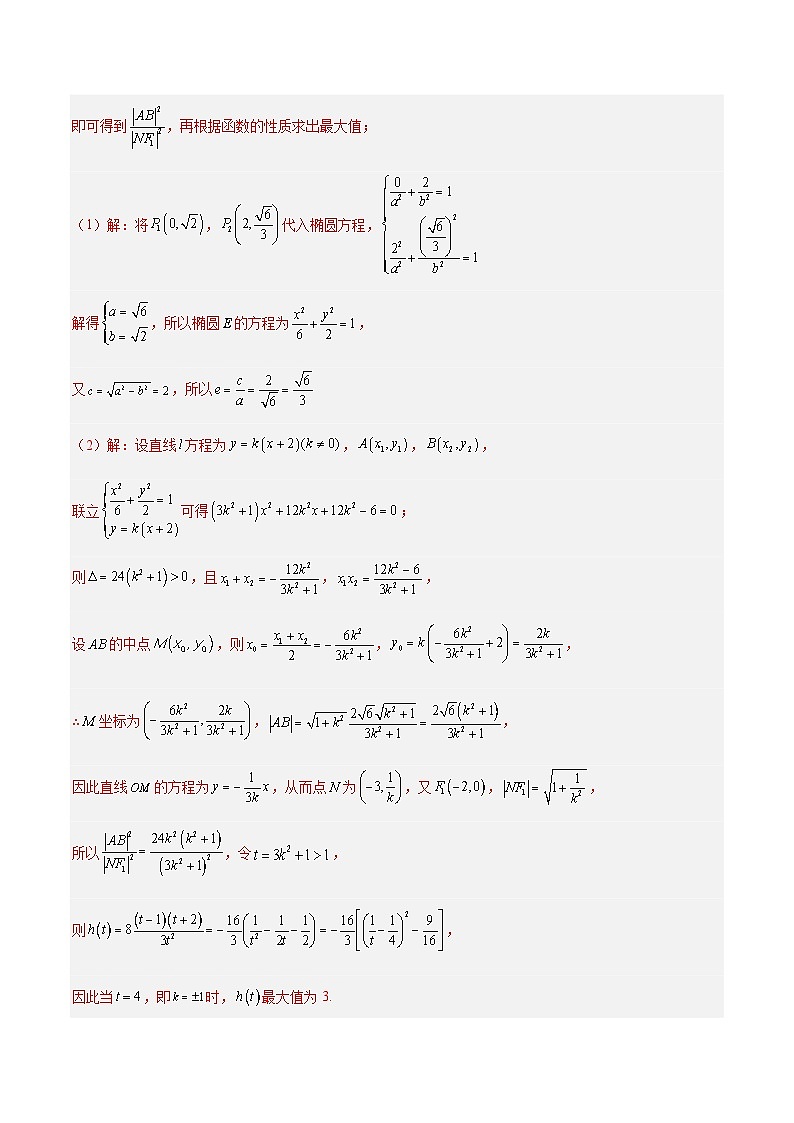 即可得到$\frac{|AB|^2}{|NF_1|^2}$，再根据函数的性质求出最大值；
（1）解：将$P_1\left(0,\sqrt{2}\right)$，$P_2\left(2,\frac{\sqrt{6}}{3}\right)$代入椭圆方程，$\begin{cases}\frac{0}{a^2}+\frac{2}{b^2}=1\\\frac{2^2}{a^2}+\frac{\left(\frac{\sqrt{6}}{3}\right)^2}{b^2}=1\end{cases}$
解得$\begin{cases}a=\sqrt{6}\\b=\sqrt{2}\end{cases}$，所以椭圆E的方程为$\frac{x^2}{6}+\frac{y^2}{2}=1$，
又$c=\sqrt{a^2-b^2}=2$，所以$e=\frac{c}{a}=\frac{2}{\sqrt{6}}=\frac{\sqrt{6}}{3}$
（2）解：设直线$l$方程为$y=k(x+2)(k\neq0)$，$A(x_1,y_1)$，$B(x_2,y_2)$，
联立$\begin{cases}\frac{x^2}{6}+\frac{y^2}{2}=1\\y=k(x+2)\end{cases}$可得$(3k^2+1)x^2+12k^2x+12k^2-6=0$；
则$\Delta=24(k^2+1)>0$，且$x_1+x_2=-\frac{12k^2}{3k^2+1}$，$x_1x_2=\frac{12k^2-6}{3k^2+1}$，
设AB的中点$M(x_0,y_0)$，则$x_0=\frac{x_1+x_2}{2}=-\frac{6k^2}{3k^2+1}$，$y_0=k\left(-\frac{6k^2}{3k^2+1}+2\right)=\frac{2k}{3k^2+1}$，
∴M坐标为$\left(-\frac{6k^2}{3k^2+1},\frac{2k}{3k^2+1}\right)$，$|AB|=\sqrt{1+k^2}\frac{2\sqrt{6}\sqrt{k^2+1}}{3k^2+1}=\frac{2\sqrt{6}(k^2+1)}{3k^2+1}$，
因此直线OM的方程为$y=-\frac{1}{3k}x$，从而点N为$\left(-3,\frac{1}{k}\right)$，又$F_1(-2,0)$，$|NF_1|=\sqrt{1+\frac{1}{k^2}}$，
所以$\frac{|AB|^2}{|NF_1|^2}=\frac{24k^2(k^2+1)}{(3k^2+1)^2}$，令$t=3k^2+1>1$，
则$h(t)=8\frac{(t-1)(t+2)}{3t^2}=-\frac{16}{3}\left(\frac{1}{t^2}-\frac{1}{2t}-\frac{1}{2}\right)=-\frac{16}{3}\left[\left(\frac{1}{t}-\frac{1}{4}\right)^2-\frac{9}{16}\right]$，
因此当$t=4$，即$k=\pm1$时，$h(t)$最大值为 3.